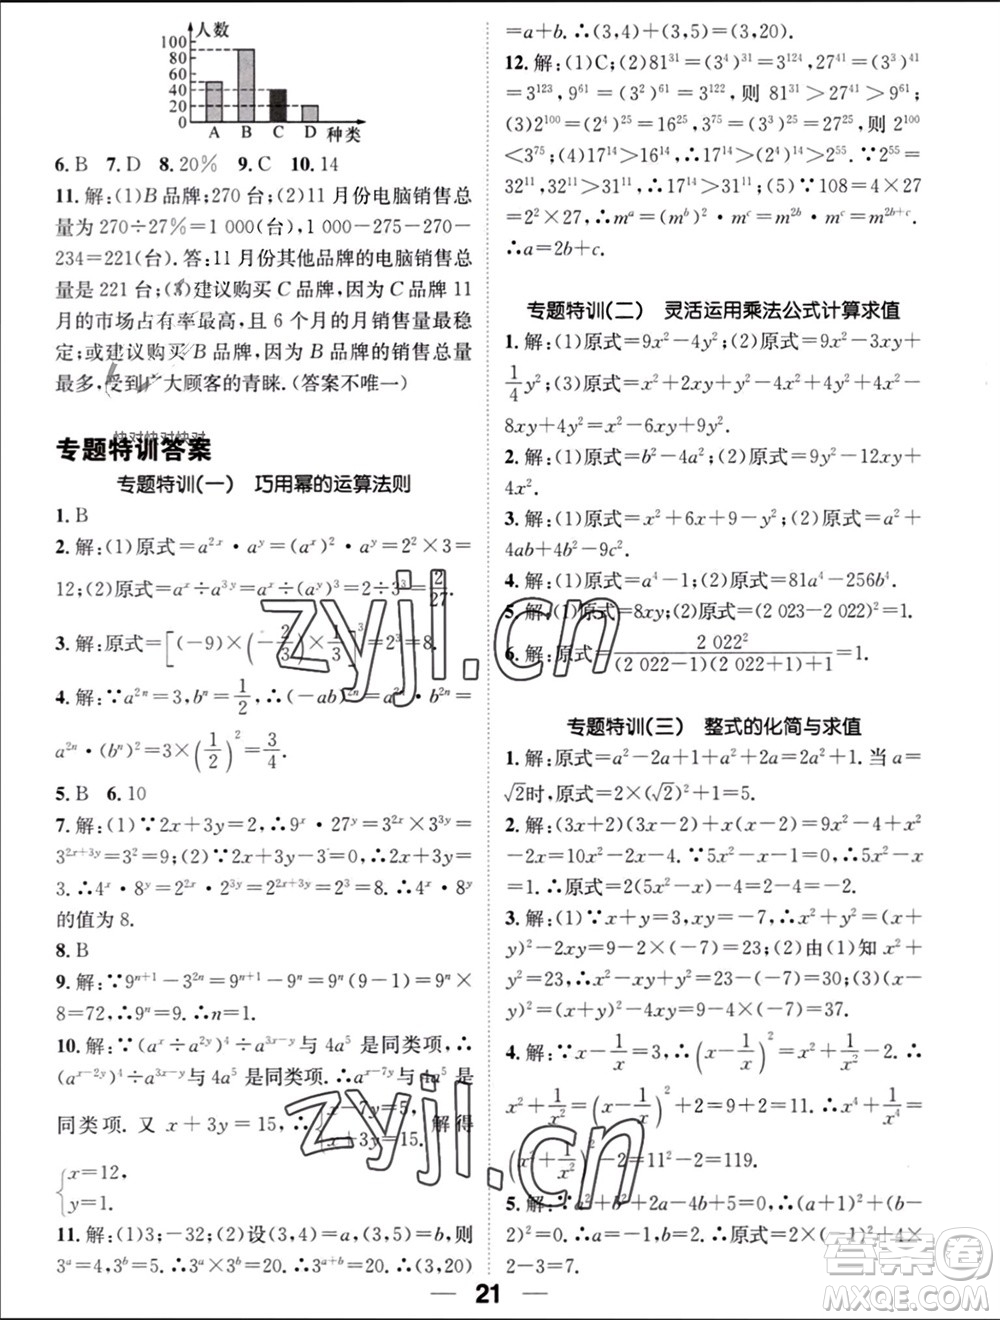 人数
100
80
60
40
20
0
A B C D 种类
6. B 7. D 8. 20% 9. C 10. 14
11. 解:(1)B 品牌;270 台;(2)11 月份电脑销售总
量为 270÷27%=1 000(台),1 000-275-270-
234=221(台). 答:11 月份其他品牌的电脑销售总
量是 221 台;(3)建议购买 C 品牌,因为 C 品牌 11
月的市场占有率最高,且 6 个月的月销售量最稳
定;或建议购买 B 品牌,因为 B 品牌的销售总量
最多,受到广大顾客的青睐.(答案不唯一)
快对快对快对
专题特训答案
专题特训(一) 巧用幂的运算法则
1. B
2. 解:(1)原式=a²ˣ·aʸ=(aˣ)²·aʸ=2²×3=
12;(2)原式=aˣ÷a³ʸ=aˣ÷(aʸ)³=2÷3³=2/27.
3. 解:原式=[(-9)×(-2/3)×1/3]³=2³=8.
4. 解:∵a²ⁿ=3,bⁿ=1/2,∴(-ab)²ⁿ=a²ⁿ·b²ⁿ=
a²ⁿ·(bⁿ)²=3×(1/2)²=3/4.
5. B 6. 10
7. 解:(1)∵2x+3y=2,∴9ˣ·27ʸ=3²ˣ×3³ʸ=
3²ˣ⁺³ʸ=3²=9;(2)∵2x+3y-3=0,∴2x+3y=
3. ∴4ˣ·8ʸ=2²ˣ·2³ʸ=2²ˣ⁺³ʸ=2³=8. ∴4ˣ·8ʸ
的值为 8.
8. B
9. 解:∵9ⁿ⁺¹-3²ⁿ=9ⁿ⁺¹-9ⁿ=9ⁿ(9-1)=9ⁿ×
8=72,∴9ⁿ=9. ∴n=1.
10. 解:∵(aˣ÷a²ʸ)⁴÷a³ˣ⁻ʸ与 4a⁵ 是同类项,∴
(aˣ⁻²ʸ)⁴÷a³ˣ⁻ʸ与 4a⁵ 是同类项.∴aˣ⁻⁷ʸ与 4a⁵ 是
同类项. 又 x+3y=15,∴{x-7y=5, x+3y=15. 解得
{x=12,
y=1.
11. 解:(1)3;-32;(2)设(3,4)=a,(3,5)=b,则
3ᵃ=4,3ᵇ=5,∴3ᵃ×3ᵇ=20. ∴3ᵃ⁺ᵇ=20. ∴(3,20)
=a+b. ∴(3,4)+(3,5)=(3,20).
12. 解:(1)C;(2)81³¹=(3⁴)³¹=3¹²⁴,27⁴¹=(3³)⁴¹
=3¹²³,9⁶¹=(3²)⁶¹=3¹²²,则 81³¹>27⁴¹>9⁶¹;
(3)2¹⁰⁰=(2⁴)²⁵=16²⁵,3⁷⁵=(3³)²⁵=27²⁵,则 2¹⁰⁰
<3⁷⁵;(4)17¹⁴>16¹⁴,∴17¹⁴>(2⁴)¹⁴>2⁵⁵. ∵2⁵⁵=
32¹¹,32¹¹>31¹¹,∴17¹⁴>31¹¹;(5)∵108=4×27
=2²×27,∴mᵃ=(mᵇ)²·mᶜ=m²ᵇ·mᶜ=m²ᵇ⁺ᶜ.
∴a=2b+c.
专题特训(二) 灵活运用乘法公式计算求值
1. 解:(1)原式=9x²-4y²;(2)原式=x²-xy+
1/4y²;(3)原式=x²+2xy+4x²-2xy+4x²-
8xy+4y²=9x²-8xy+4y².
2. 解:(1)原式=b²-4a²;(2)原式=9y²-12xy+
4x².
3. 解:(1)原式=x²+6x+9-y²;(2)原式=a²+
4ab+4b²-9c².
4. 解:(1)原式=a⁴-1;(2)原式=81a⁴-256b⁴.
5. 解:(1)原式=8xy;(2)原式=(2 023-2 022)²=1.
6. 解:原式=2 022²/((2 022-1)(2 022+1)+1)=1.
专题特训(三) 整式的化简与求值
1. 解:原式=a²-2a+1+a²+2a=2a²+1. 当 a=
√2时,原式=2×(√2)²+1=5.
2. 解:(3x+2)(3x-2)+x(x-2)=9x²-4+x²
-2x=10x²-2x-4. ∵5x²-x-1=0,∴5x²-x=
1. ∴原式=2(5x²-x)-4=-2.
3. 解:(1)∵x+y=3,xy=-7,∴x²+y²=(x+
y)²-2xy=9-2×(-7)=23;(2)由(1)知 x²+
y²=23,∴x²-xy+y²=23-(-7)=30;(3)(x-
y)²=(x+y)²-4xy=9-4×(-7)=37.
4. 解:∵x-1/x=3,∴(x-1/x)²=x²+1/x²-2. ∴
x²+1/x²=(x-1/x)²+2=9+2=11. ∴x⁴+1/x⁴=
(x²+1/x²)²-2=11²-2=119.
5. 解:∵a²+b²+2a-4b+5=0,∴(a+1)²+(b-
2)²=0. ∴a=-1,b=2. ∴原式=2×(-1)²+4×
2-3=7.
zyjl.cn
zyjl.cn
答案圈
MXQE.COM
21